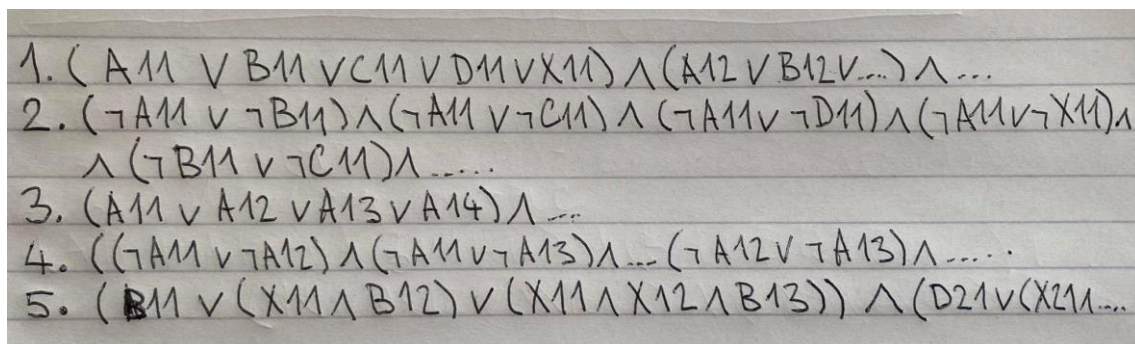 1. (A11 ∨ B11 ∨ C11 ∨ D11 ∨ X11) ∧ (A12 ∨ B12 ∨ ...) ∧ ...
2. (¬A11 ∨ ¬B11) ∧ (¬A11 ∨ ¬C11) ∧ (¬A11 ∨ ¬D11) ∧ (¬A11 ∨ ¬X11) ∧
∧ (¬B11 ∨ ¬C11) ∧ .....
3. (A11 ∨ A12 ∨ A13 ∨ A14) ∧ ...
4. ((¬A11 ∨ ¬A12) ∧ (¬A11 ∨ ¬A13) ∧ ... (¬A12 ∨ ¬A13) ∧ .....
5. (B11 ∨ (X11 ∧ B12) ∨ (X11 ∧ X12 ∧ B13)) ∧ (D21 ∨ (X21 ∧ ....